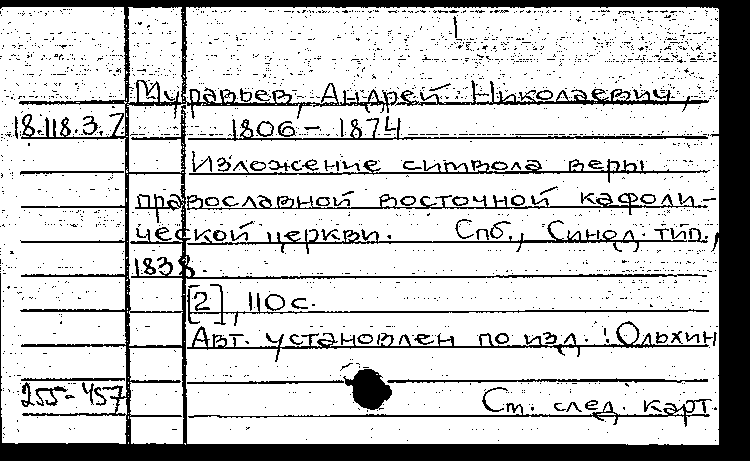 Муравьев, Андрей Николаевич,
18.118.3.7 1806 - 1874
Изложение символа веры
православной восточной кафоли-
ческой церкви. Спб., Синод. тип.,
1838.
[2], 110 с.
Авт. установлен по изд.: Ольхин
255-457 См. след. карт.